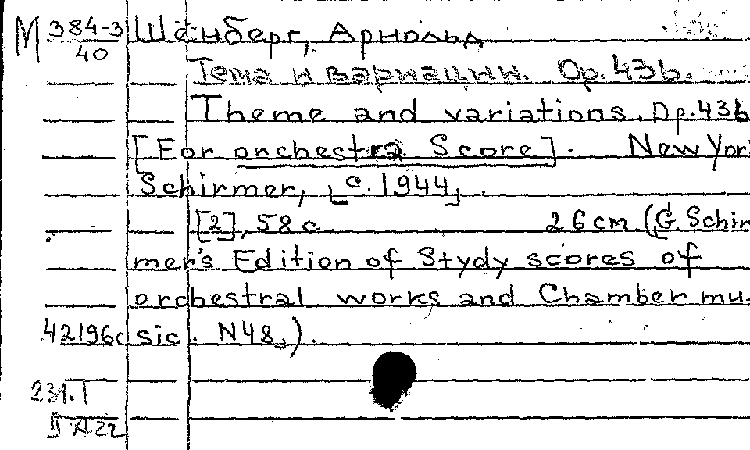 М 384-3/40 Шёнберг, Арнольд
Тема и вариации. Op. 43b.
Theme and variations. Op. 43b
[For orchestra Score]. New Yor
Schirmer, [c. 1944]
[2], 58 c. 26 cm (G. Schir
mer's Edition of Stydy scores of
orchestral works and Chamber mu-
42196 sic. N48.).
231.1